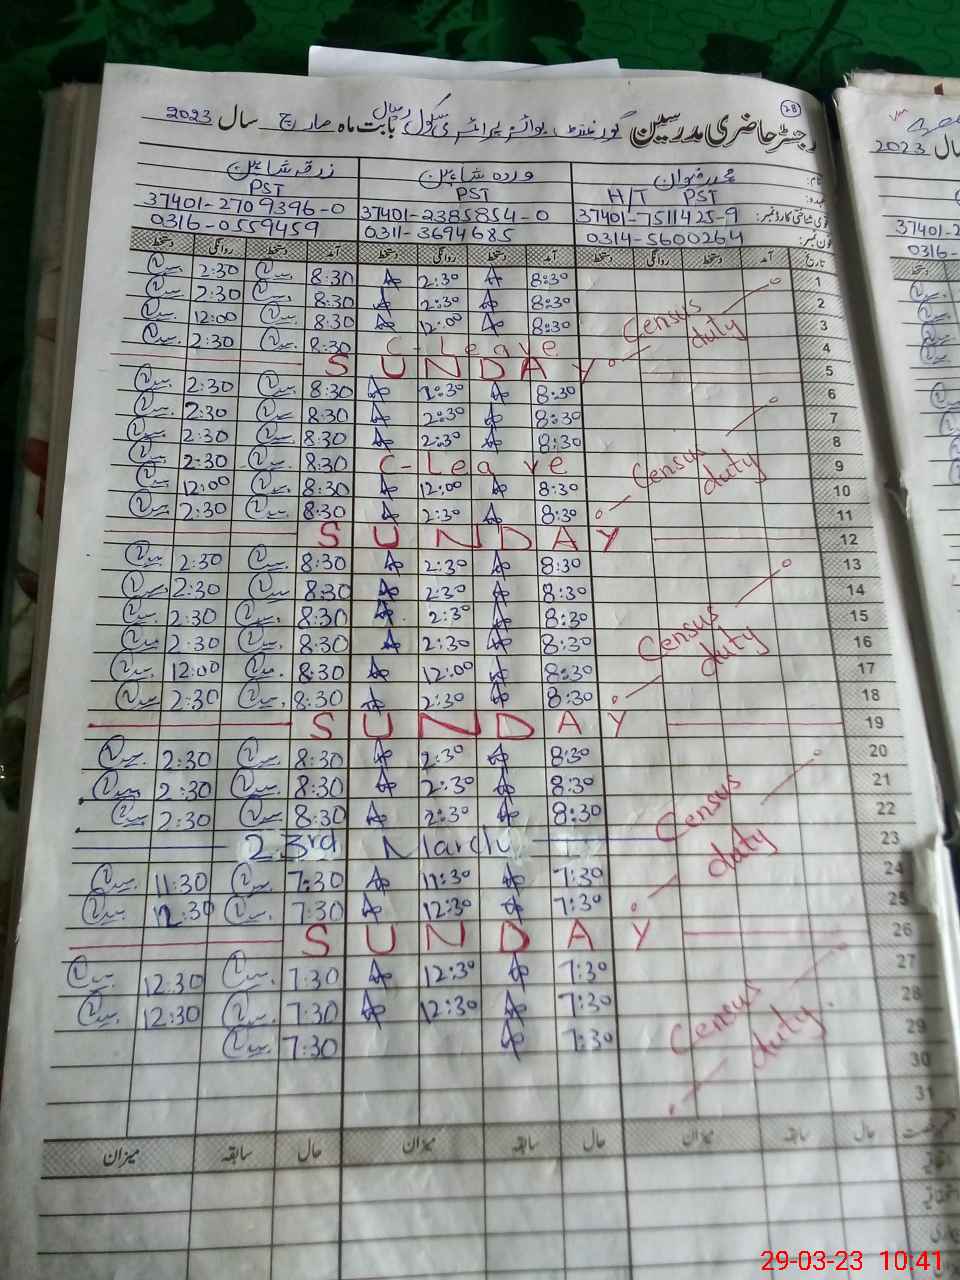 28
رجسٹر حاضری مدرسین گورنمنٹ بوائز پرائمری سکول بابت ماہ مارچ سال 2023
نام: محمد رضوان وردہ شاہین زرقہ شاہین
عہدہ: H/T PST PST PST
قومی شناختی کارڈ نمبر: 37401-7511425-9 37401-2385854-0 37401-2709396-0
فون نمبر: 0314-5600264 0311-3694685 0316-0559459
تاریخ آمد دستخط روانگی دستخط آمد دستخط روانگی دستخط آمد دستخط روانگی دستخط
1 8:30 2:30 8:30 2:30
2 8:30 2:30 8:30 2:30
3 Census duty 8:30 12:00 8:30 12:00
4 C-Leave 8:30 2:30
5 SUNDAY
6 8:30 2:30 8:30 2:30
7 8:30 2:30 8:30 2:30
8 8:30 2:30 8:30 2:30
9 Census duty C-Leave 8:30 2:30
10 8:30 12:00 8:30 12:00
11 8:30 2:30 8:30 2:30
12 SUNDAY
13 8:30 2:30 8:30 2:30
14 8:30 2:30 8:30 2:30
15 8:30 2:30 8:30 2:30
16 Census duty 8:30 2:30 8:30 2:30
17 8:30 12:00 8:30 12:00
18 8:30 2:30 8:30 2:30
19 SUNDAY
20 8:30 2:30 8:30 2:30
21 8:30 2:30 8:30 2:30
22 8:30 2:30 8:30 2:30
23 Census duty 23rd March
24 7:30 11:30 7:30 11:30
25 7:30 12:30 7:30 12:30
26 SUNDAY
27 7:30 12:30 7:30 12:30
28 7:30 12:30 7:30 12:30
29 Census duty 7:30 7:30
30
31
حال سابقہ میزان حال سابقہ میزان حال سابقہ میزان
سال 2023
37401-2
0316-0
دستخط
29-03-23 10:41